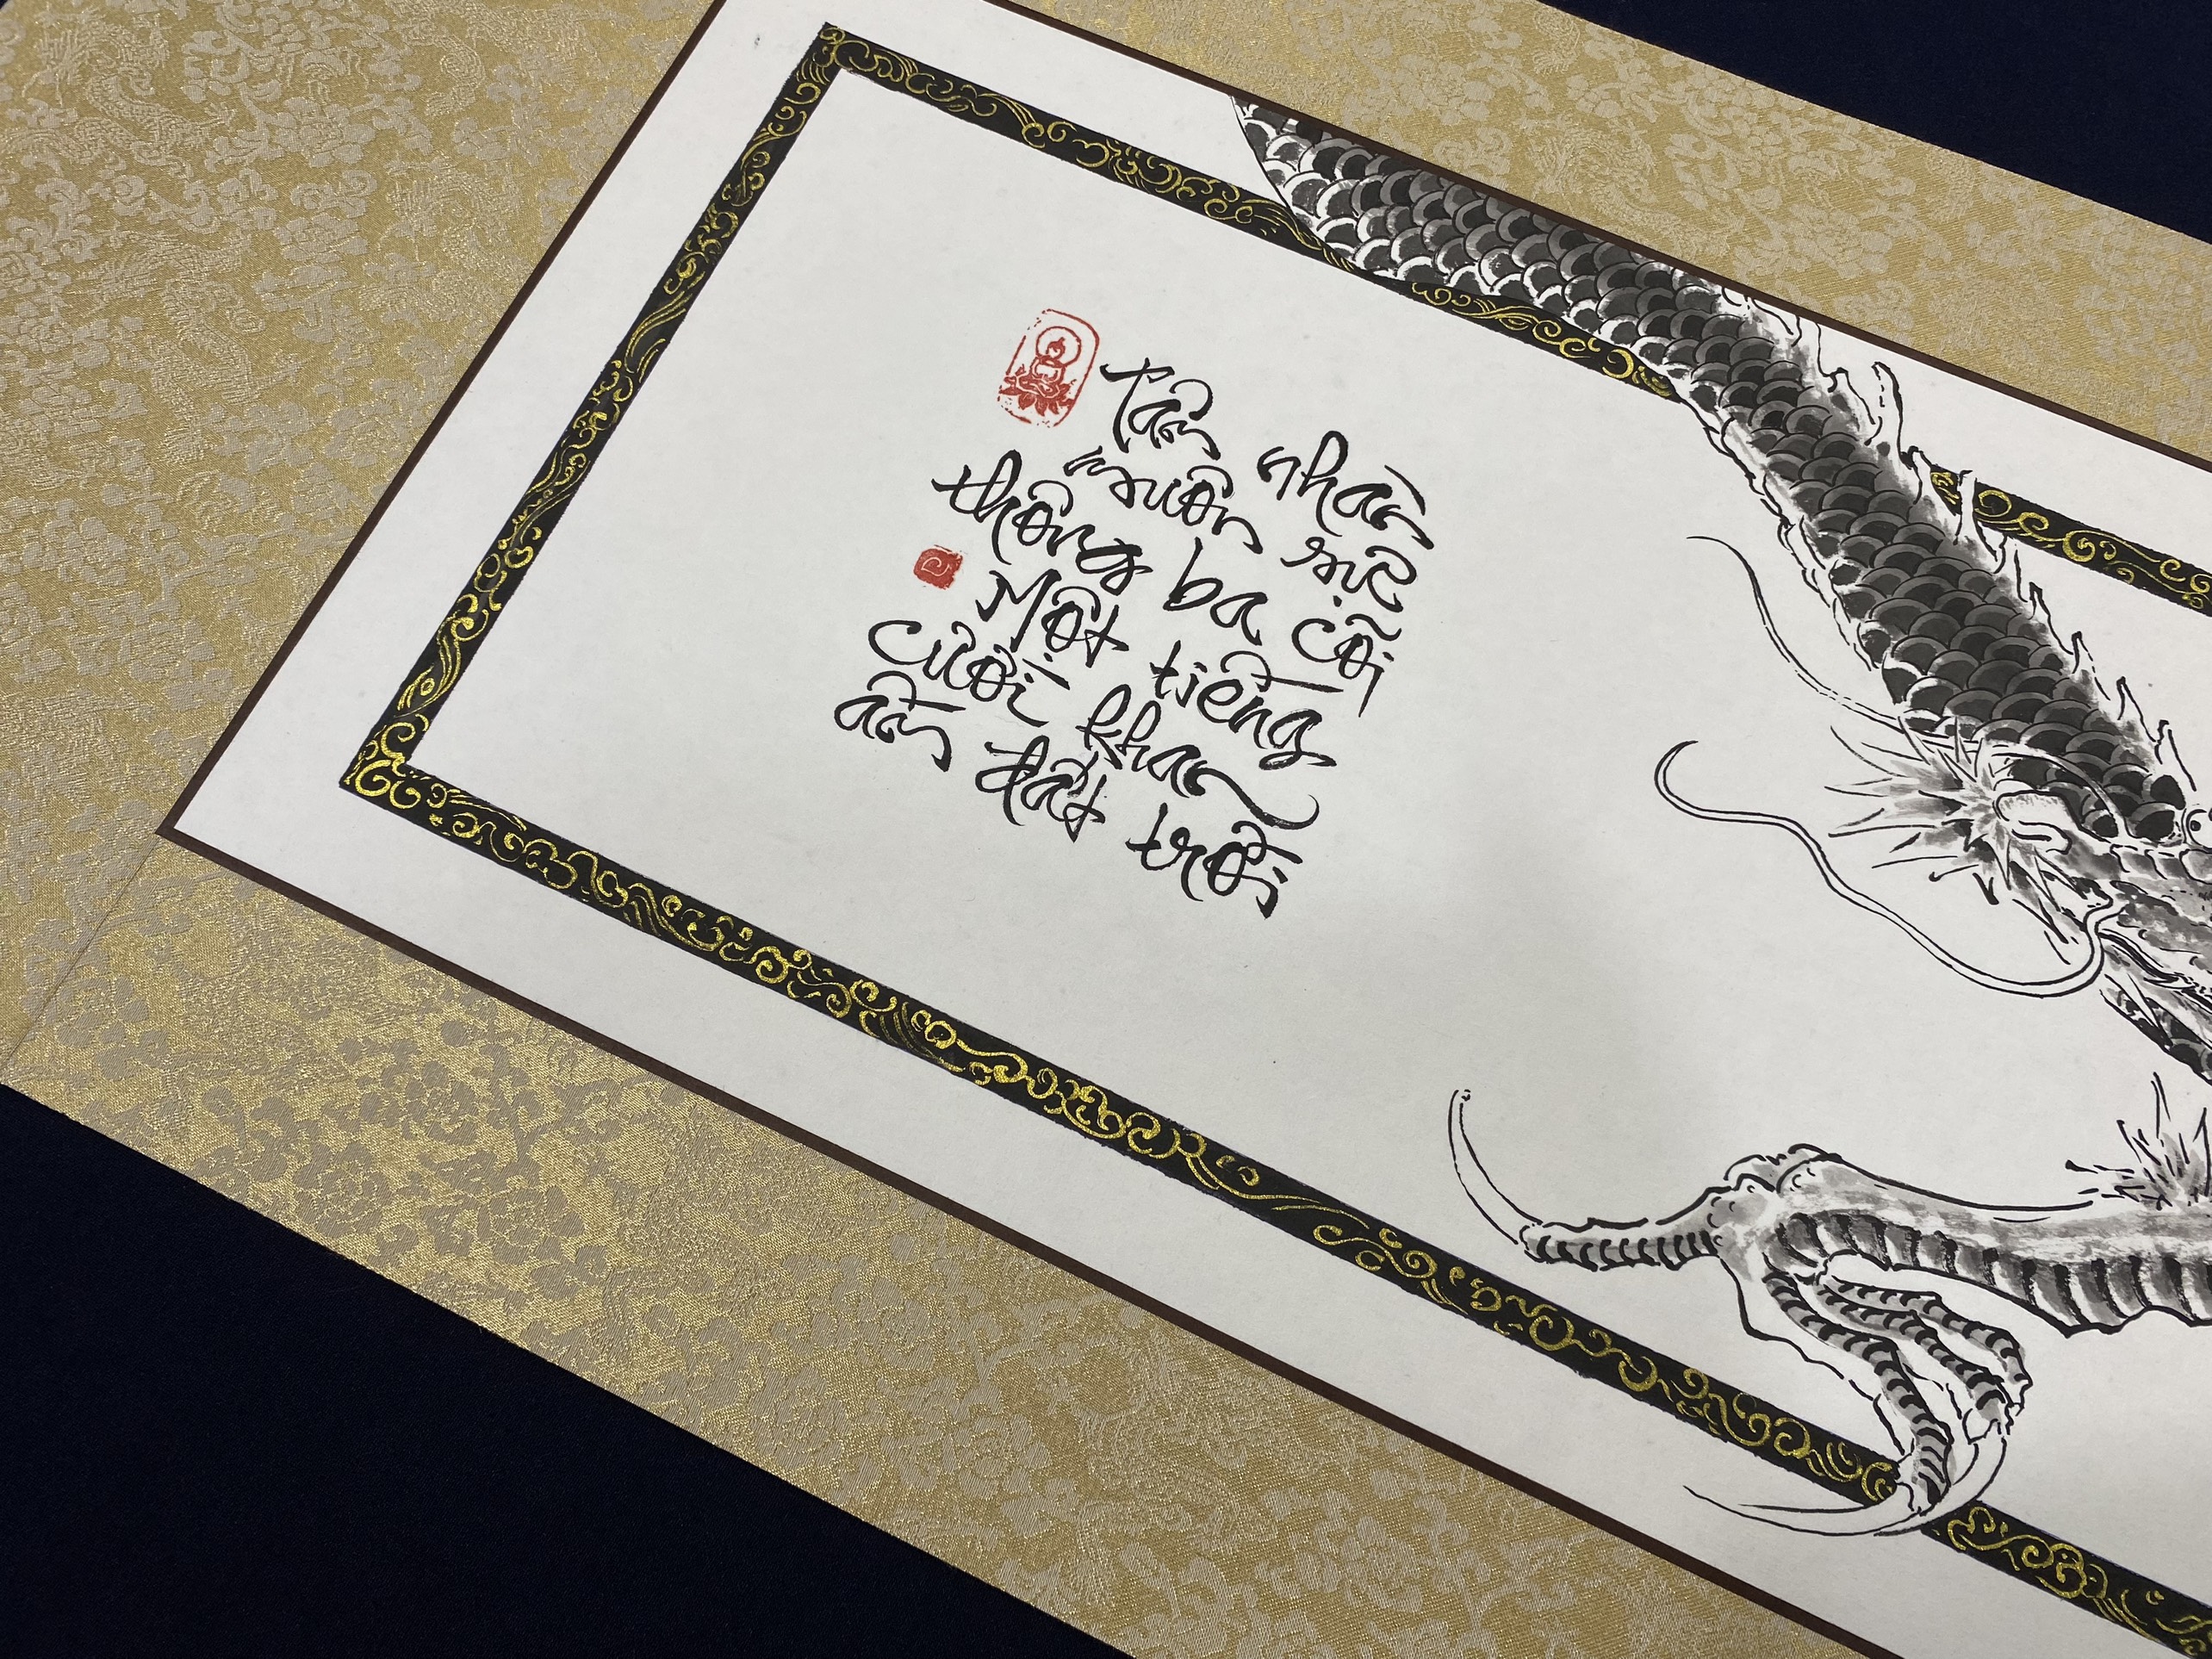 Tâm nhàn
muôn sự
thông ba cõi
Một tiếng
cười khan
ấm đất trời